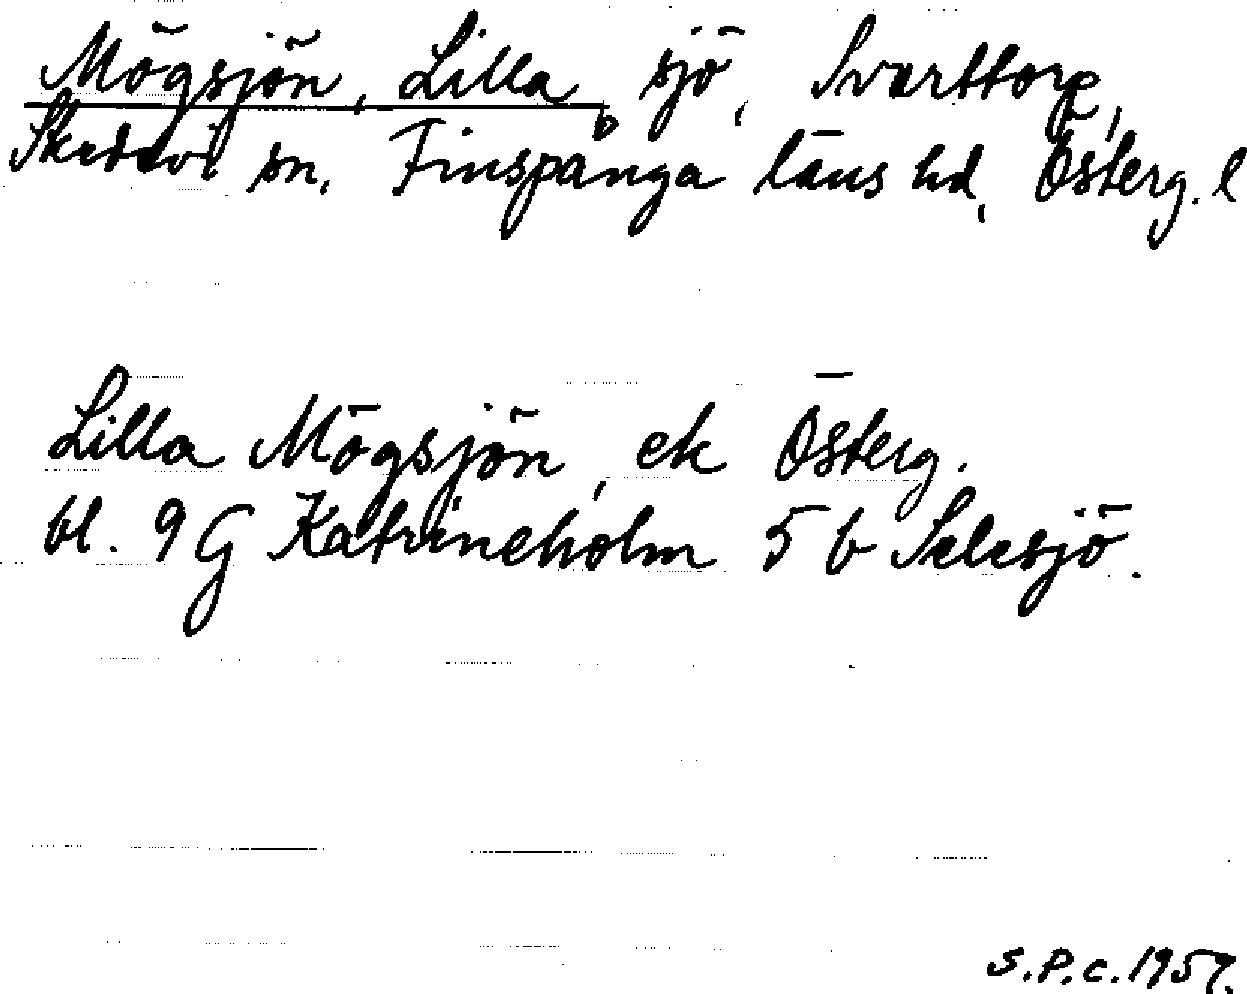 Mögsjön, Lilla, sjö, Svarttorp,
Skedevi sn, Finspånga läns hd, Österg. l
Lilla Mögsjön, ek Österg.
bl. 9 G Katrineholm 5 b Selesjö.
S.P.C. 1957.